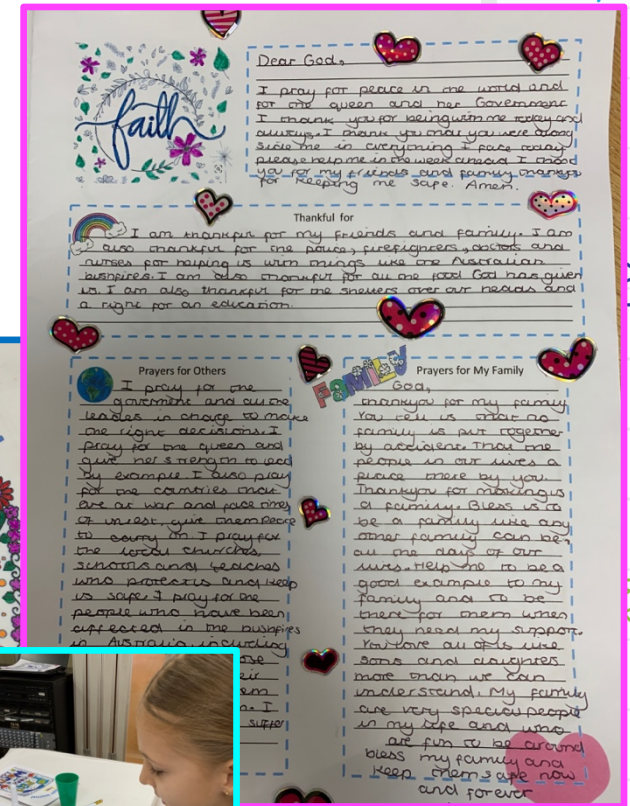 faith
Dear God,
I pray for peace in the world and
for the queen and her Government
I thank you for being with me today and
always. I thank you that you were along
side me in everything I face today
please help me in the week ahead I thank
you for my friends and family thankyou
for keeping me safe. Amen.
Thankful for
I am thankful for my friends and family. I am
also thankful for the police, firefighters, doctors and
nurses for helping us with things like the Australian
bushfires. I am also thankful for all the food God has given
us. I am also thankful for the shelters over our heads and
a right for an education.
Prayers for Others
I pray for the
goverment and all the
leades in charge to make
the right decisions. I
pray for the queen and
give her strength to lead
by example. I also pray
for the countries that
are at war and face times
of unrest, give them peace
to carry on. I pray for
the local churches,
schools and teaches
who protect us and keep
us safe. I pray for the
people who have been
affected in the bushfires
in Australia including
. I
suffer
FAMILY
Prayers for My Family
God,
thankyou for my family
You tell us that no
family is put together
by accident. That the
people in our lives a
place there by you.
Thankyou for making us
a family. Bless us to
be a family like any
other family can be,
all the days of our
lives. Help me to be a
good example to my
family and to be
there for them when
they need my support.
You love all of us like
sons and daughters
more than we can
understand. My family
are very special people
in my life and who
are fun to be around
bless my family and
keep them safe now
and forever